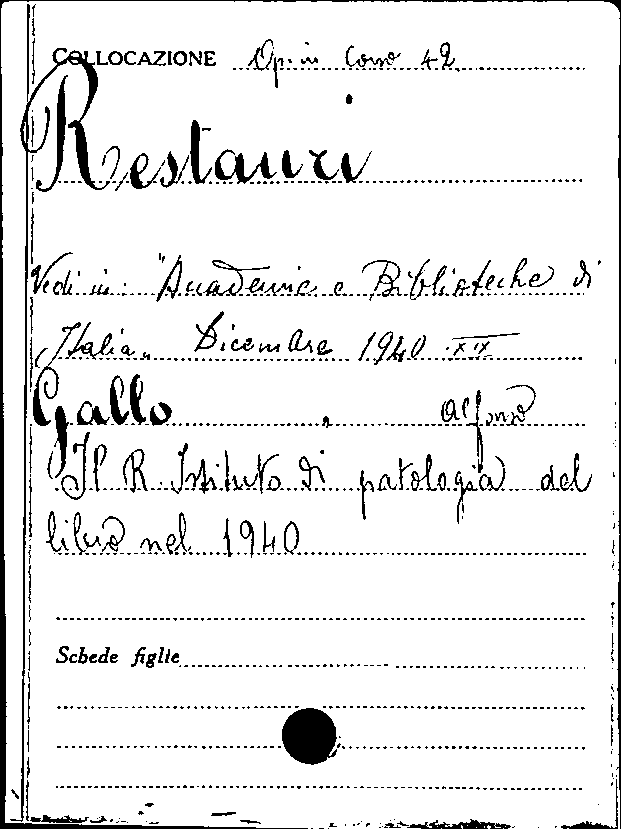 COLLOCAZIONE Op. in Corso 42
Restauri
Vedi in: "Accademie e Biblioteche di
Italia" Dicembre 1940 XIX
Gallo, Alfonso
Il R. Istituto di patologia del
libro nel 1940
Schede figlie